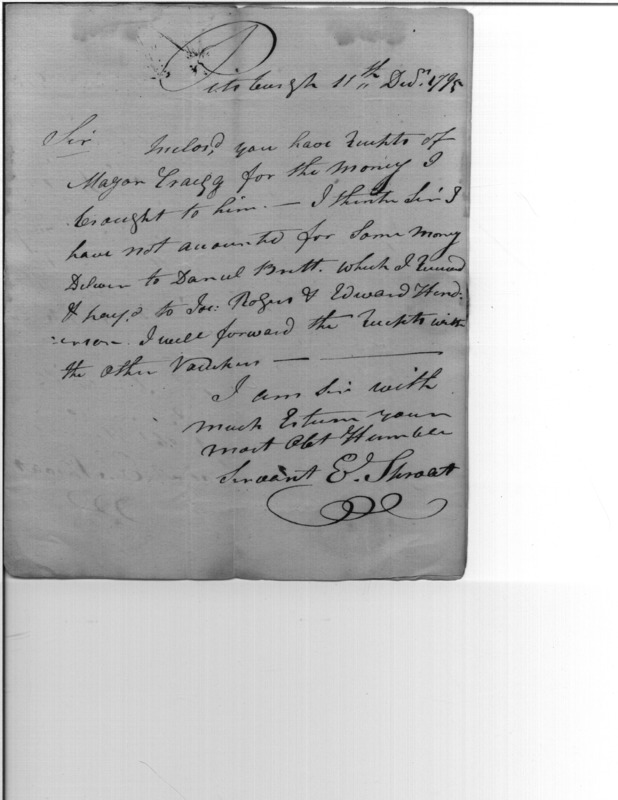 Pittsburgh 11th Decr. 1795
Sir Inclos'd you have Receipts of
Mayor Craigg for the Money I
brought to him. — I think Sir I
have not accounted for Some Money
Deliver to Daniel Britt. which I Received
& pay'd to Jos: Rogers & Edward Hend:
:erson. I will forward the Receipts with
the Other Vouchers —
I am Sir with
much Esteem your
most Obt Humble
Servant E. Sproat